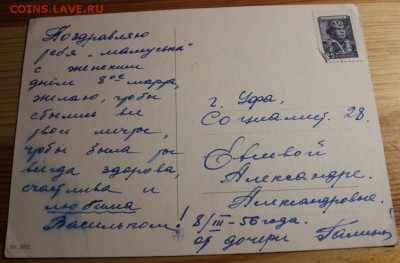 COINS.LAVE.RU
Поздравляю
тебя „мамуська"
с женским
днём 8ое марта,
желаю, чтобы
сбылись все
твои мечты,
чтобы была ты
всегда здорова,
счастлива и
любима
Васильком!
г. Уфа,
Социалист. 28.
Евсивой
Александре
Александровне.
8/III-56 года.
от дочери Галины